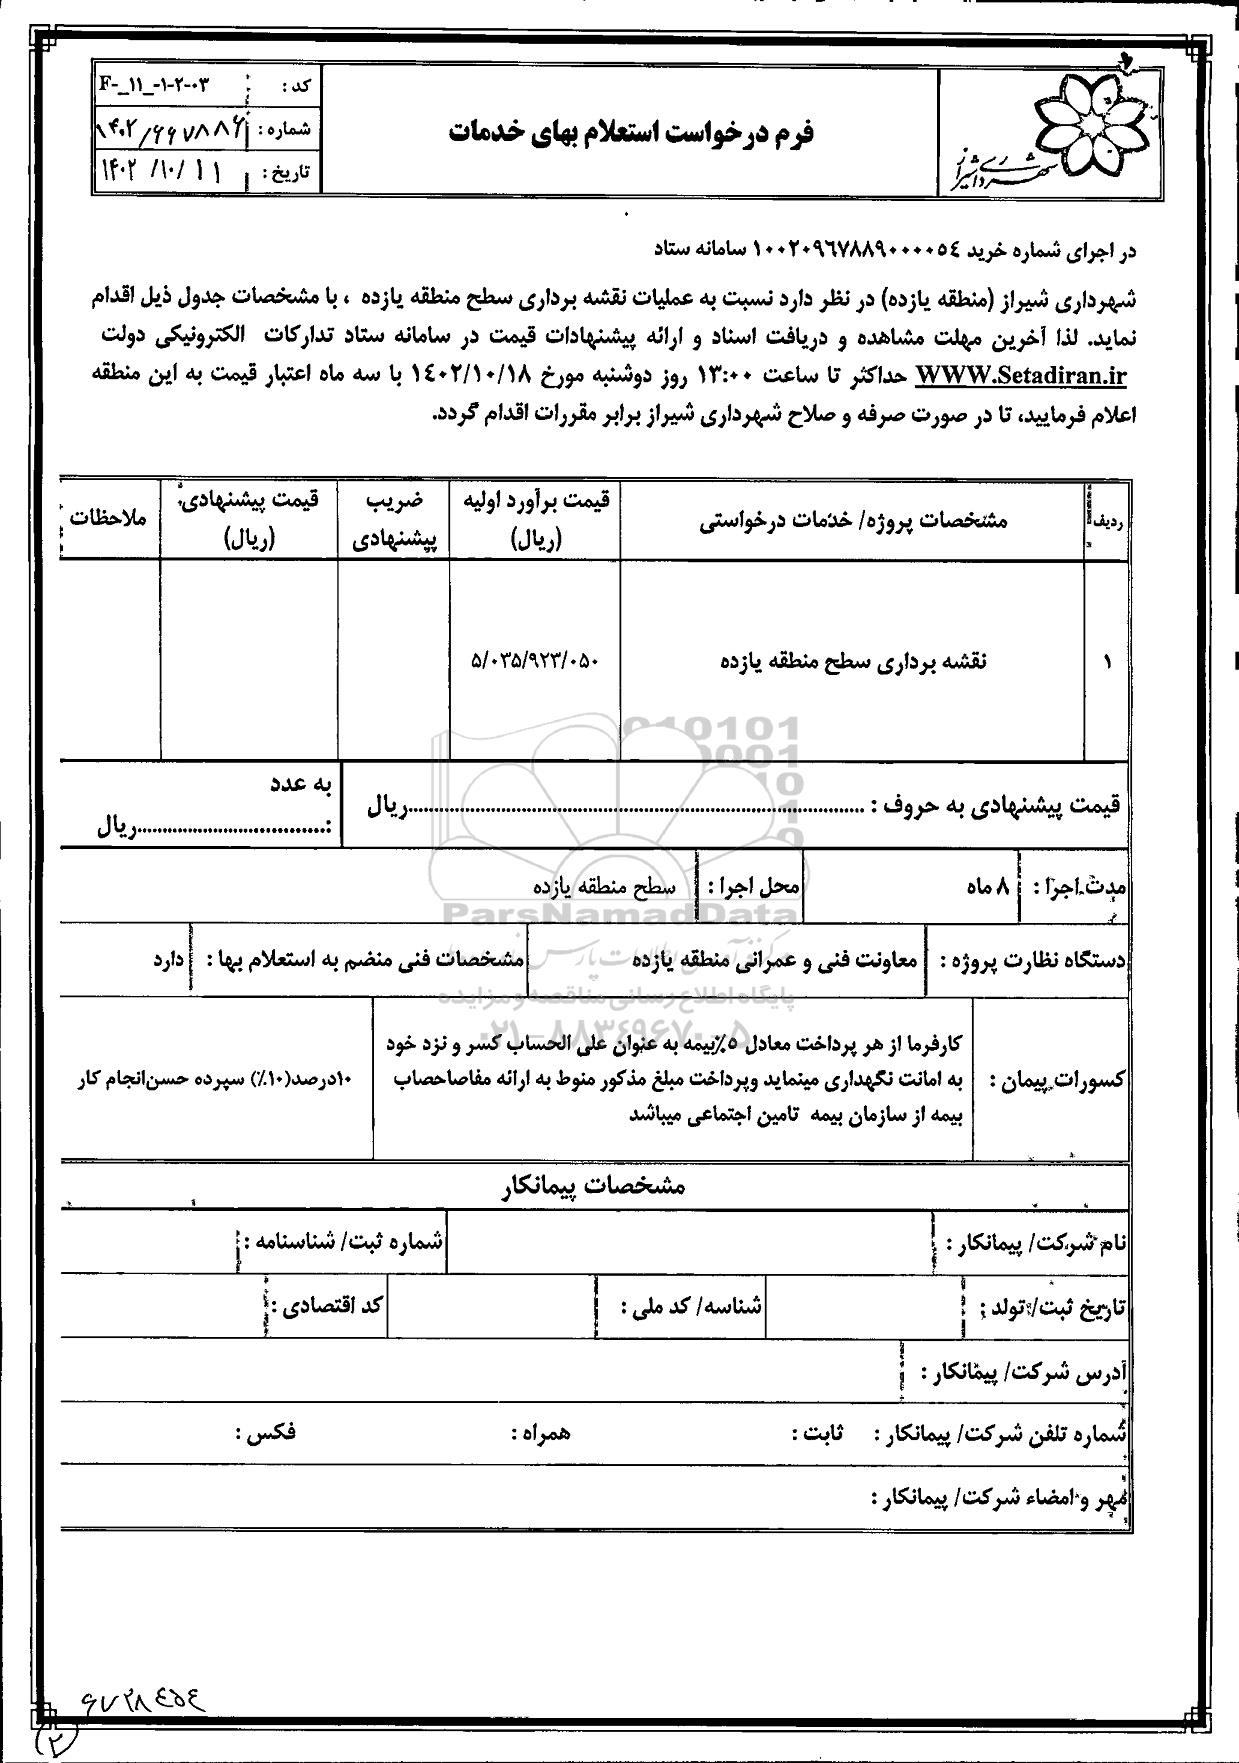 شهرداری شیراز
فرم درخواست استعلام بهای خدمات
کد : F-_۱۱_-۱-۲-۰۳
شماره : ۱۴۰۲/۶۶۷۸۸۶
تاریخ : ۱۴۰۲/۱۰/۱۱
در اجرای شماره خرید ۱۰۰۲۰۹۶۷۸۸۹۰۰۰۰۵۴ سامانه ستاد
شهرداری شیراز (منطقه یازده) در نظر دارد نسبت به عملیات نقشه برداری سطح منطقه یازده ، با مشخصات جدول ذیل اقدام
نماید. لذا آخرین مهلت مشاهده و دریافت اسناد و ارائه پیشنهادات قیمت در سامانه ستاد تدارکات الکترونیکی دولت
WWW.Setadiran.ir حداکثر تا ساعت ۱۳:۰۰ روز دوشنبه مورخ ۱۴۰۲/۱۰/۱۸ با سه ماه اعتبار قیمت به این منطقه
اعلام فرمایید، تا در صورت صرفه و صلاح شهرداری شیراز برابر مقررات اقدام گردد.
ردیف
مشخصات پروژه/ خدمات درخواستی
قیمت برآورد اولیه
(ریال)
ضریب
پیشنهادی
قیمت پیشنهادی
(ریال)
ملاحظات
۱
نقشه برداری سطح منطقه یازده
۵/۰۳۵/۹۲۳/۰۵۰
قیمت پیشنهادی به حروف : ..........ریال
به عدد
:..........ریال
مدت اجرا : ۸ ماه
محل اجرا : سطح منطقه یازده
دستگاه نظارت پروژه : معاونت فنی و عمرانی منطقه یازده
مشخصات فنی منضم به استعلام بها : دارد
کسورات پیمان :
کارفرما از هر پرداخت معادل ۵٪بیمه به عنوان علی الحساب کسر و نزد خود
به امانت نگهداری مینماید وپرداخت مبلغ مذکور منوط به ارائه مفاصاحصاب
بیمه از سازمان بیمه تامین اجتماعی میباشد
۱۰درصد(۱۰٪) سپرده حسن‌انجام کار
مشخصات پیمانکار
نام شرکت/ پیمانکار :
شماره ثبت/ شناسنامه :
تاریخ ثبت/ تولد :
شناسه/ کد ملی :
کد اقتصادی :
آدرس شرکت/ پیمانکار :
شماره تلفن شرکت/ پیمانکار : ثابت :
همراه :
فکس :
مهر و امضاء شرکت/ پیمانکار :
۶۷۲۸۴۵۴
(۲)
ParsNamadData
پایگاه اطلاع رسانی مناقصه و مزایده
۰۲۱-۸۸۳۴۹۶۷۰-۵